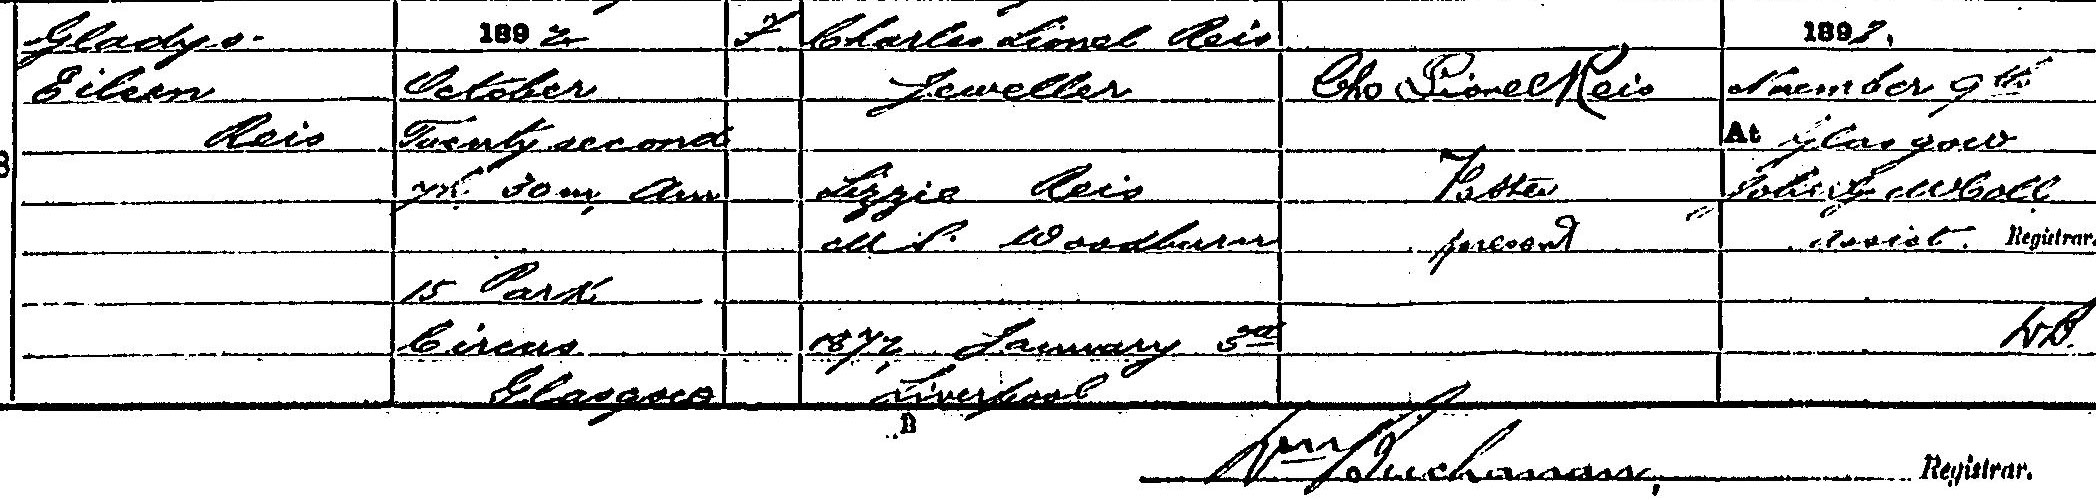 Gladys
Eileen
Reis
1892
October
Twenty second
7h. 30m. AM
15 Park
Circus
Glasgow
F
Charles Lionel Reis
Jeweller
Lizzie Reis
M.S. Woodburn
1872, January 3rd
Liverpool
Chs Lionel Reis
Father
present
1892.
November 9th
At Glasgow
McCall
Assist. Registrar.
WB.
B
Wm Buchanan, Registrar.